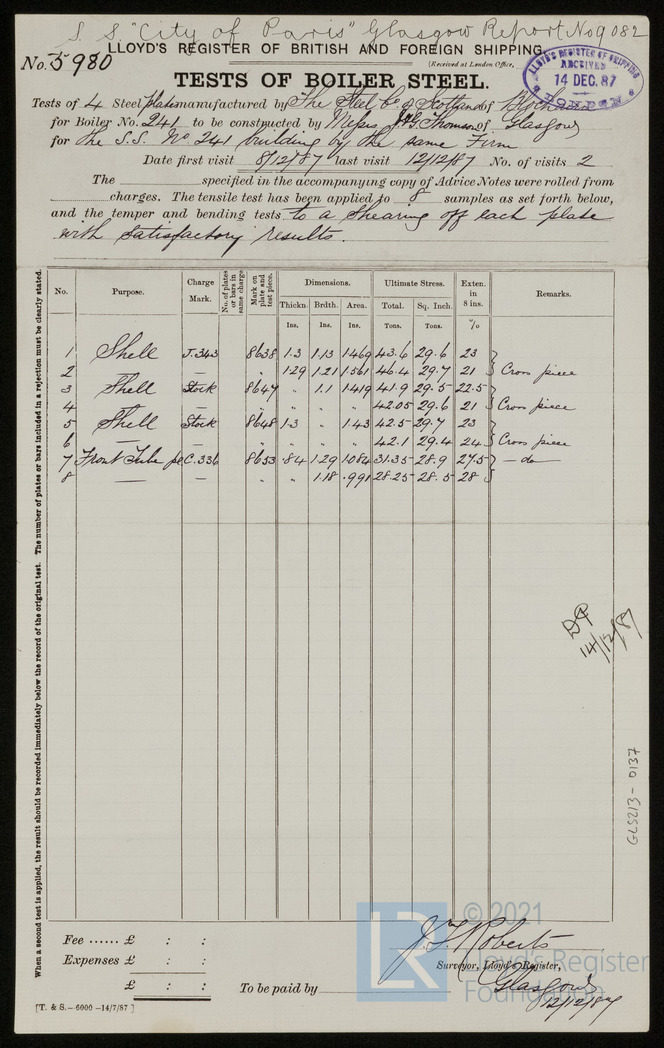 S. S. "City of Paris" Glasgow Report No 9082
LLOYD'S REGISTER OF BRITISH AND FOREIGN SHIPPING.
No. 5980
(Received at London Office,
LLOYD'S REGISTER OF SHIPPING
ARCHIVED
14 DEC. 87
LONDON
TESTS OF BOILER STEEL.
Tests of 4 Steel plates manufactured by The Steel Co. of Scotland of
for Boiler No. 241 to be constructed by Messrs J. & G. Thomson of Glasgow
for the S.S. No 241 building by the same Firm
Date first visit 8/12/87 last visit 12/12/87 No. of visits 2
The specified in the accompanying copy of Advice Notes were rolled from
charges. The tensile test has been applied to 8 samples as set forth below,
and the temper and bending tests to a shearing off each plate
with satisfactory results.
When a second test is applied, the result should be recorded immediately below the record of the original test. The number of plates or bars included in a rejection must be clearly stated.
No. Purpose. Charge Mark. No. of plates or bars in same charge Mark on plate and test piece. Dimensions. Ultimate Stress. Exten. in 8 ins. Remarks.
Thickn. Brdth. Area. Total. Sq. Inch.
Ins. Ins. Ins. Tons. Tons. %
1 Shell J.343 8638 1.3 1.13 1.469 43.6 29.6 23
2 — „ 1.29 1.21 1.561 46.4 29.7 21 Cross piece
3 Shell Stock 8647 „ 1.1 1.419 41.9 29.5 22.5
4 — — „ „ „ „ 42.05 29.6 21 Cross piece
5 Shell Stock 8648 1.3 „ 1.43 42.5 29.7 23
6 — — „ „ „ „ 42.1 29.4 24 Cross piece
7 Front Tube pl C.336 8653 .84 1.29 1.084 31.35 28.9 27.5 — do
8 — — „ „ 1.18 .991 28.25 28.5 28
DP
14/12/87
GLS213-0137
© 2021
LR
Lloyd's Register
Foundation
Fee ...... £ : :
Expenses £ : :
£ : :
To be paid by
J. F. Roberts
Surveyor, Lloyd's Register,
Glasgow
12/12/87
[T. & S.—6000—14/7/87]